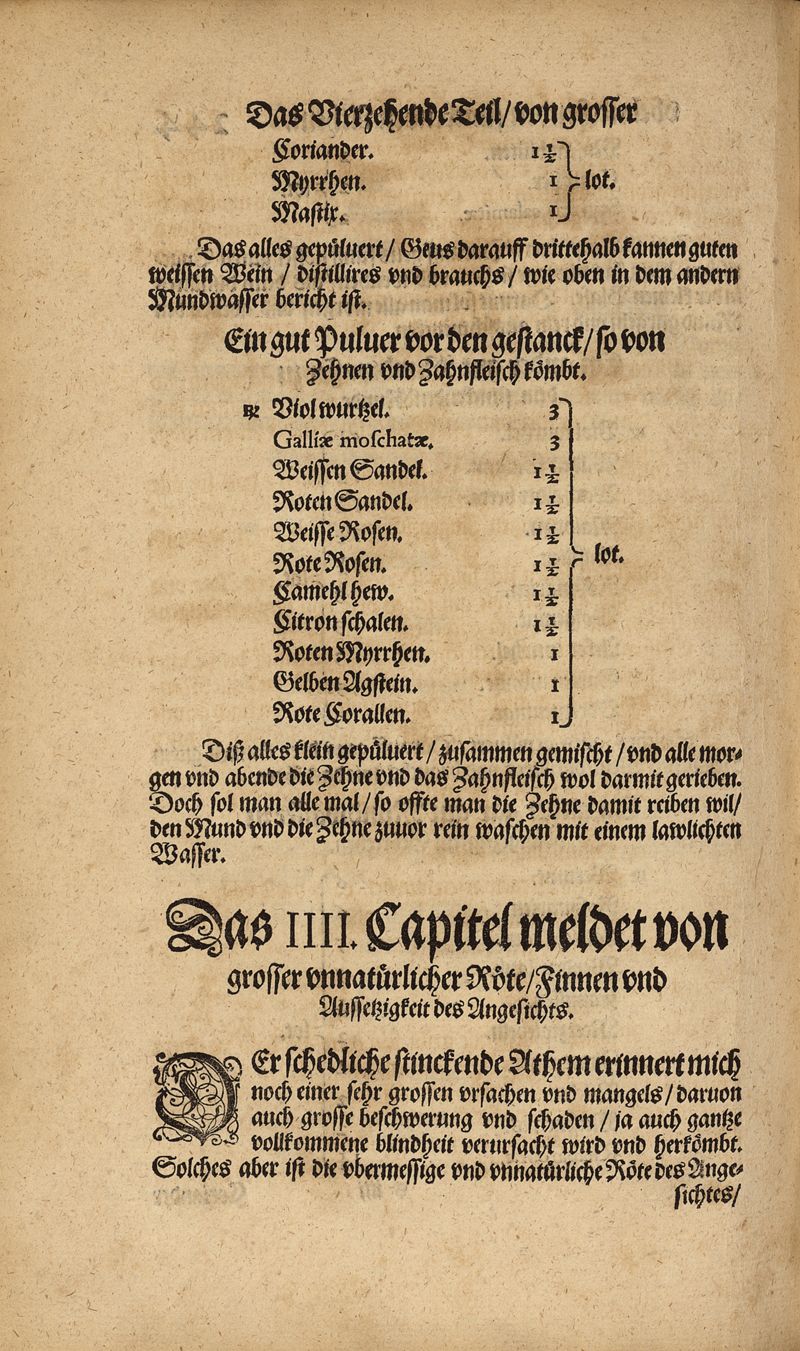 Das Vierzehende Teil/ von grosser
Coriander. 1½
Myrrhen. 1 lot.
Mastix. 1
Das alles gepůluert/ Geus darauff drittehalb kannen guten
weissen Wein / distillires vnd brauchs/ wie oben in dem andern
Mundwasser bericht ist.
Ein gut Puluer vor den gestanck/ so von
Zehnen vnd Zahnfleisch kömbt.
℞ Violwurtzel. 3
Galliæ moschatæ. 3
Weissen Sandel. 1½
Roten Sandel. 1½
Weisse Rosen. 1½
Rote Rosen. 1½ lot.
Camehl hew. 1½
Citron schalen. 1½
Roten Myrrhen. 1
Gelben Agstein. 1
Rote Corallen. 1
Diß alles klein gepůluert/ zusammen gemischt/ vnd alle mor⸗
gen vnd abende die Zehne vnd das Zahnfleisch wol darmit gerieben.
Doch sol man alle mal/ so offte man die Zehne damit reiben wil/
den Mund vnd die Zehne zuuor rein waschen mit einem lawlichten
Wasser.
Das IIII. Capitel meldet von
grosser vnnatůrlicher Röte/ Finnen vnd
Aussetzigkeit des Angesichts.
DEr schedliche stinckende Athem erinnert mich
noch einer sehr grossen vrsachen vnd mangels/ daruon
auch grosse beschwerung vnd schaden / ja auch gantze
vollkommene blindheit verursacht wird vnd herkömbt.
Solches aber ist die vbermessige vnd vnnatůrliche Röte des Ange⸗
sichtes/